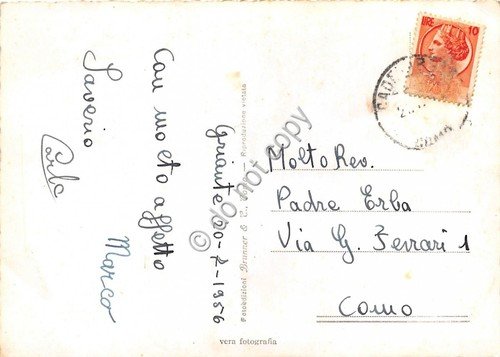 Griante 20-7-1956
Con molto affetto
Saverio
Marco
Carlo
Molto Rev.
Padre Erba
Via G. Ferrari 1
Como
LIRE 10
Fotoedizioni Brunner & C.
Riproduzione vietata
vera fotografia
do not copy